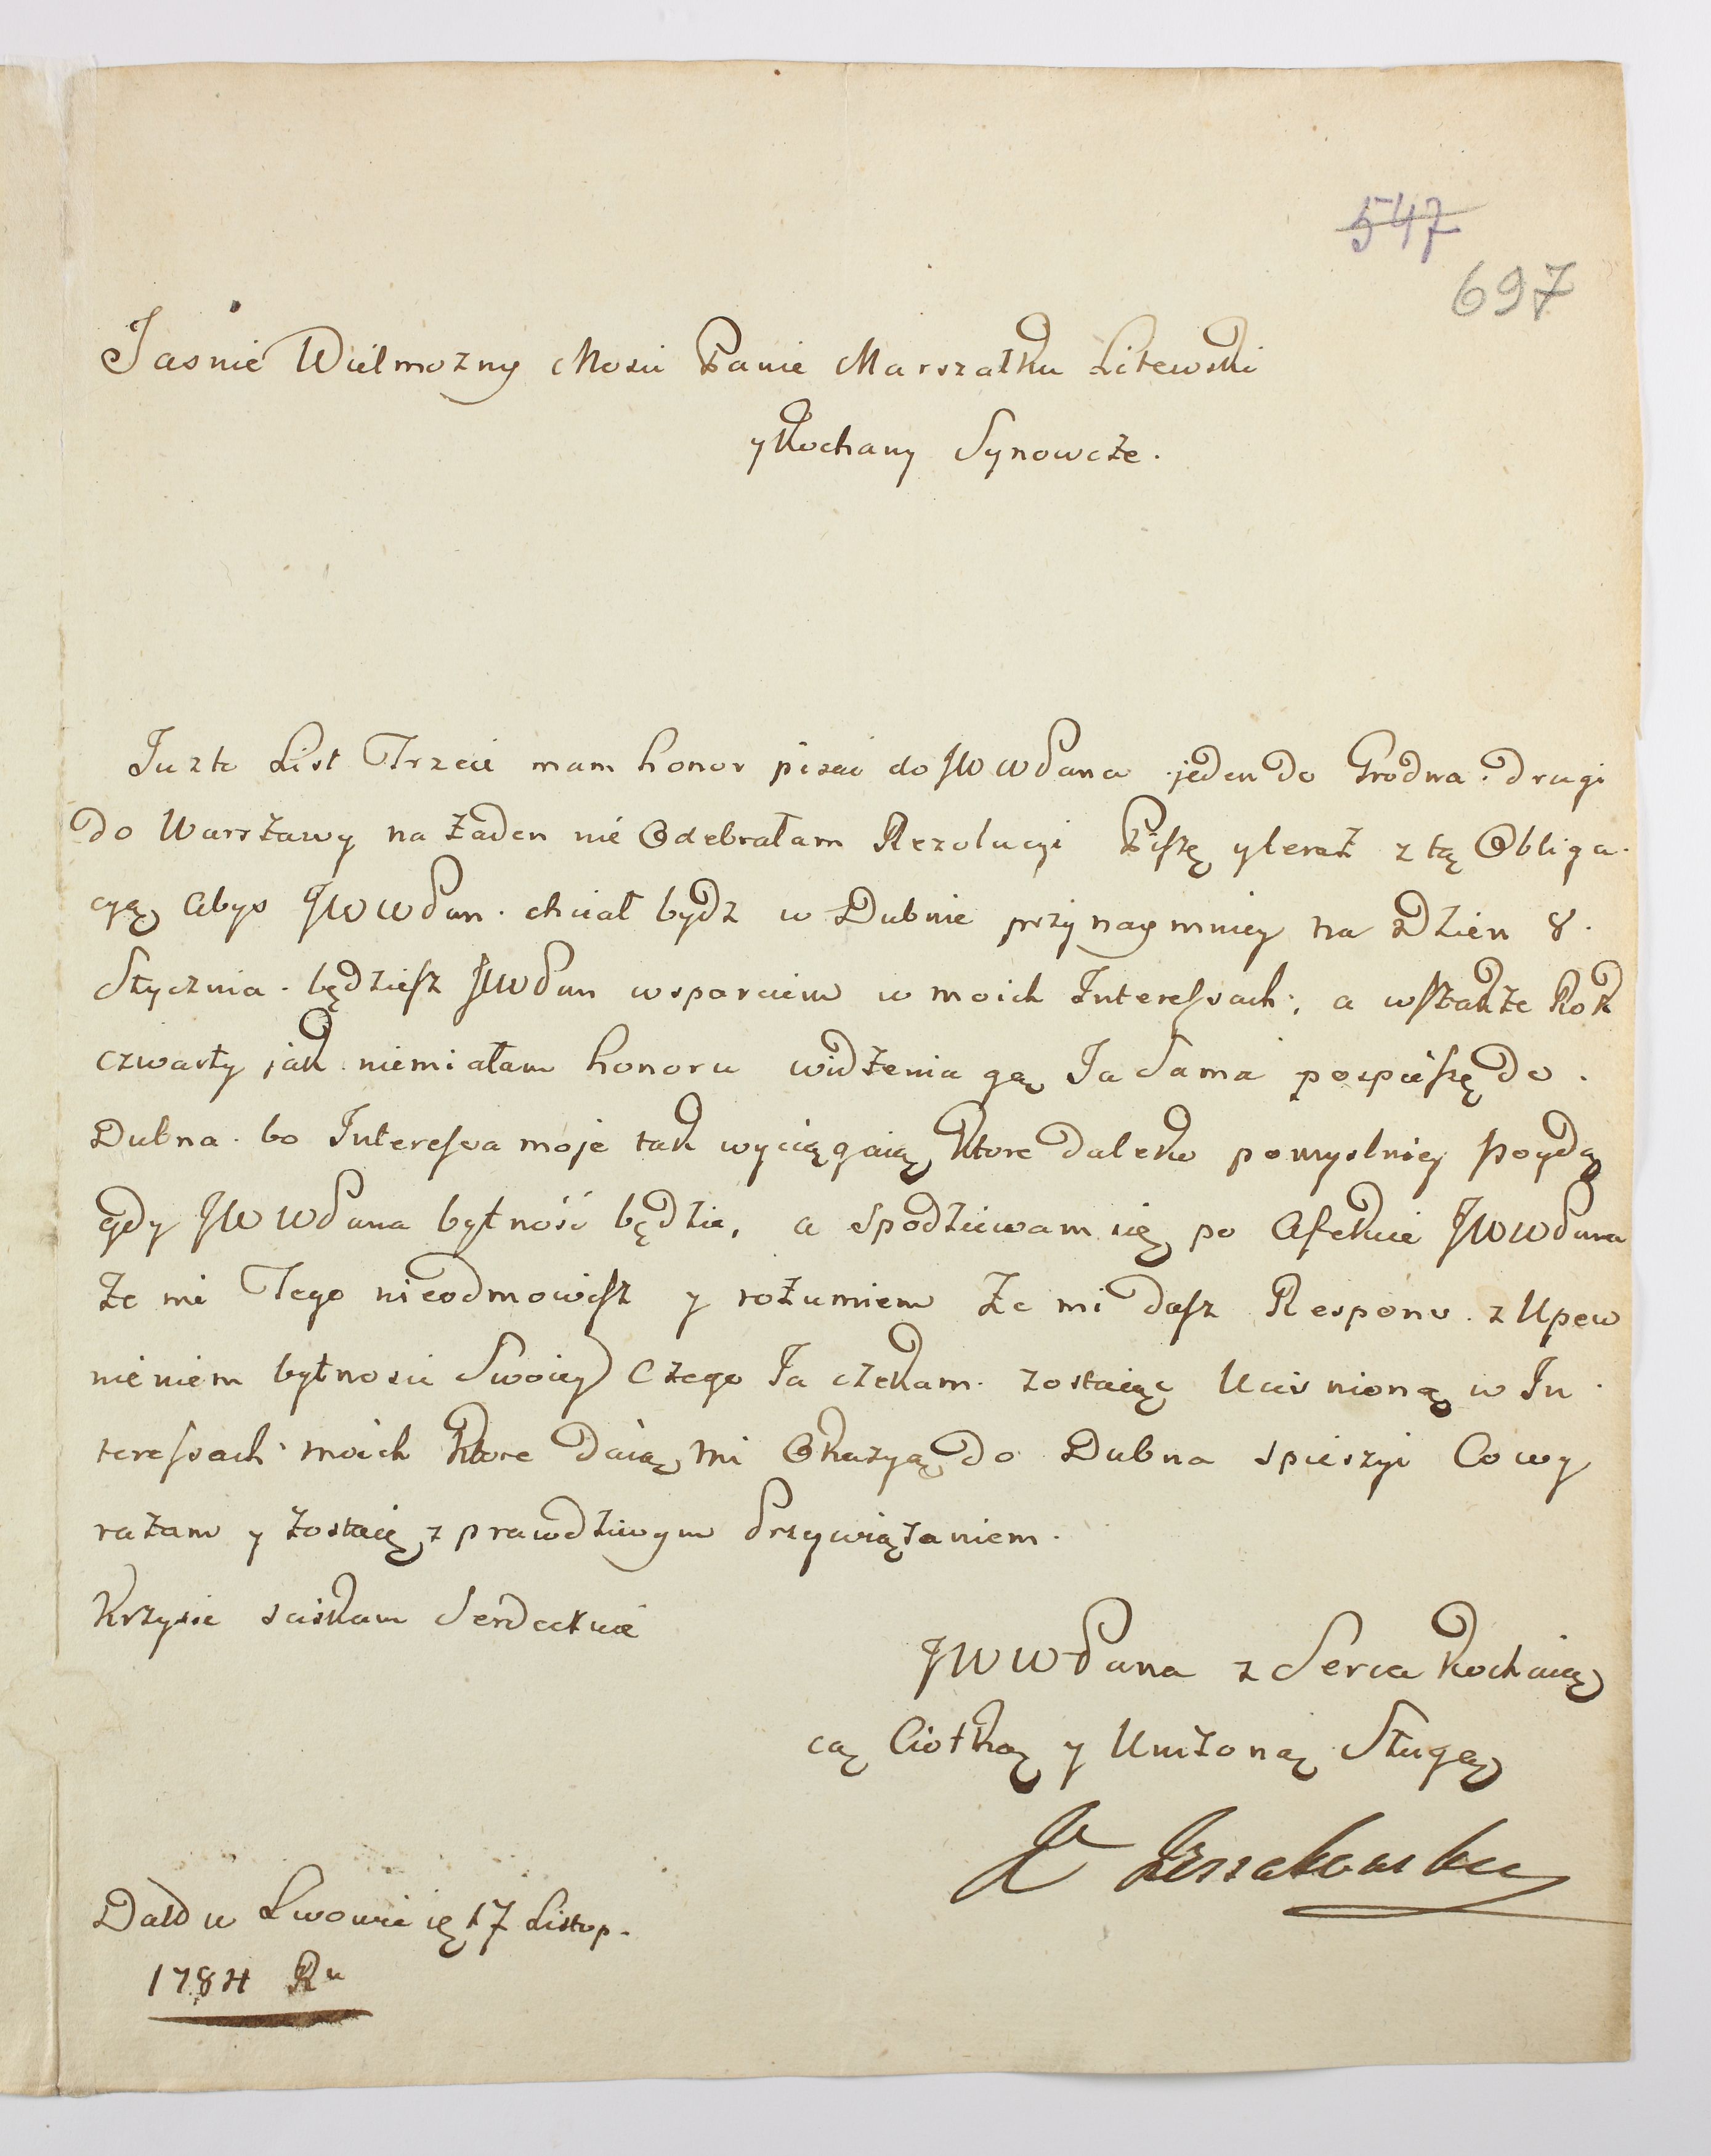 547
697
Jasnie Wielmozny Mosci Panie Marszałku Litewski
y Kochany Synowcże.
Juz to List Trzeci mam honor pisać do JWWPana jeden do Grodna. drugi
do Warszawy na żaden nie Odebrałam Rezolucyi Piszę y teraż z tą Obliga-
cyą abys JWWPan. chciał bydz w Dubnie przynaymniey na Dzien 8.
Stycznia. będziesz JWWPan wsparciem w moich Interessach; a wszakże Rok
czwarty jak niemiałam honoru widżenia go, Ja Sama pospieszę do.
Dubna. bo Interessa moje tak wyciągaią, ktore daleko pomyslniey poydą
gdy JWWPana bytność będzie, a Spodziewam się po Afekcie JWWPana
że mi Tego nieodmowisz y rożumiem że mi dasz Respons. z Upew
nieniem bytnosci Swoiey czego Ja czekam. zostaiąc Ucisnioną w In-
teressach moich ktore daią mi Okazyą do Dubna spieszyć Co wy
rażam y żostaię z prawdziwym Przywiążaniem.
Krzysie sciskam Serdecznie
JWWPana z Serca Kochaią
cą Ciotką y Uniżoną Sługą
Datt w Lwowie ię 17 Listop.
1784 Ru